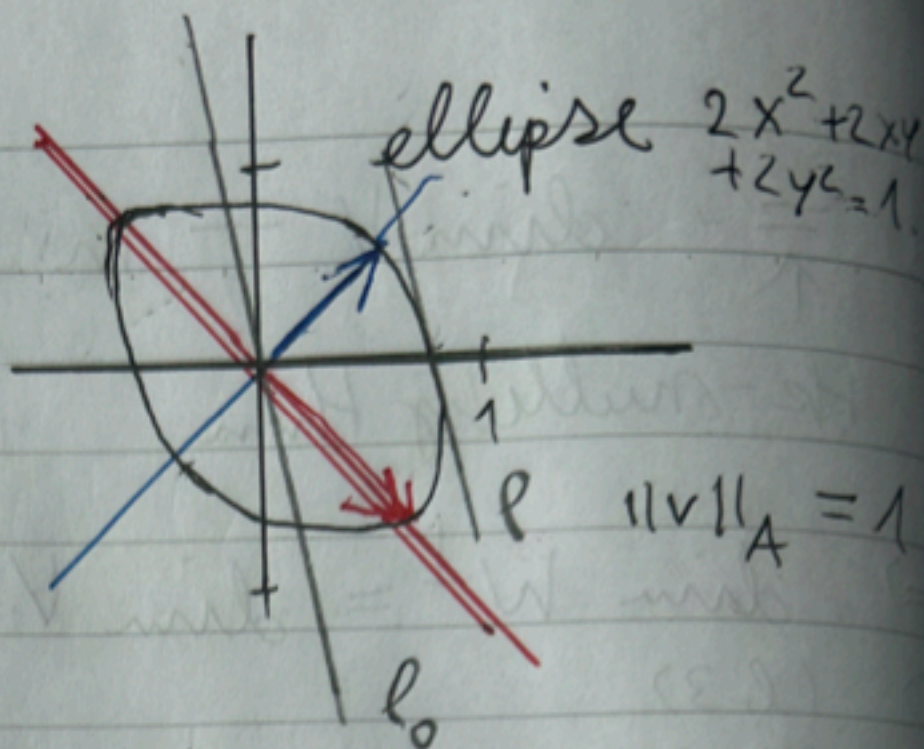 ellipse 2x²+2xy
+2y²=1.
1
ℓ
||v||_A = 1
ℓ₀